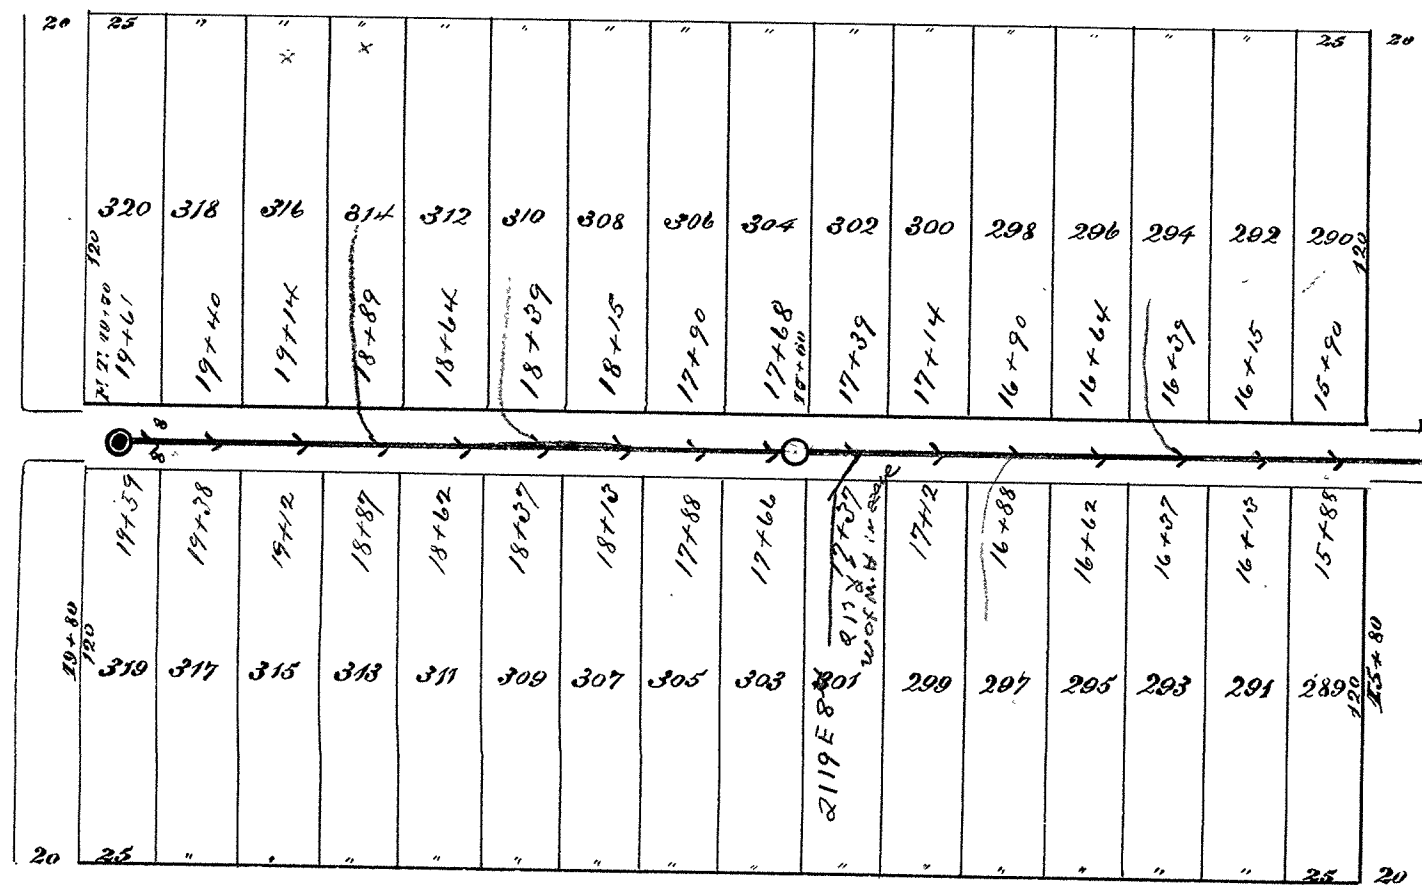 20 25 " " " " " " " " " " " " " " 25 20
x x
320 318 316 314 312 310 308 306 304 302 300 298 296 294 292 290
120 120
19+61 19+40 19+14 18+89 18+64 18+39 18+15 17+90 17+68 17+39 17+14 16+90 16+64 16+39 16+15 15+90
8
8
19+59 19+38 19+12 18+87 18+62 18+37 18+13 17+88 17+66 17+37 17+12 16+88 16+62 16+37 16+13 15+88
W of M.H in
19+80 120 120 15+80
319 317 315 313 311 309 307 305 303 301 299 297 295 293 291 289
2119 E 8
20 25 " " " " " " " " " " " " " " 25 20